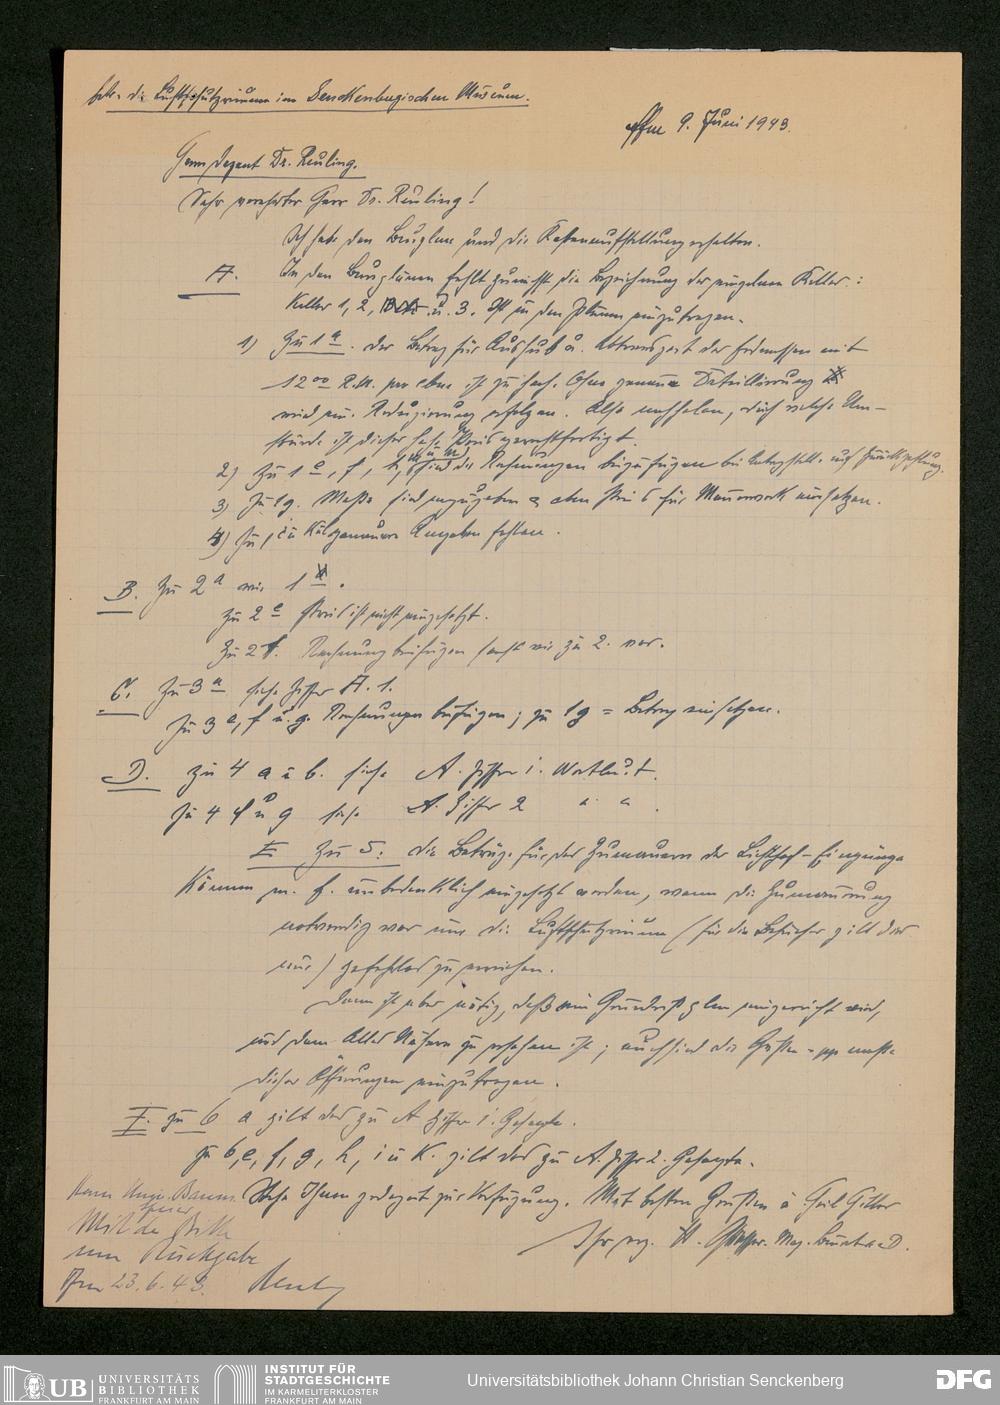 betr. die Luftschutzräume im Senckenbergischen Museum.
Ffm 9. Juni 1943.
Herrn Dezent Dr. Reuling.
Sehr verehrter Herr Dr. Reuling!
Ich habe den Bauplan und die Kostenaufstellung erhalten.
A. In den Bauplänen fehlt zunächst die Bezeichnung der einzelnen Keller:
Keller 1, 2, u. 3. Ist in den Plänen einzutragen.
1) Zu 1 a. der Betrag für Aushub u. Abtransport der Erdmassen mit
12 00 R.M. pro cbm ist zu hoch. Ohne genaue Detaillierung
wird eine Reduzierung erfolgen. Also nachholen, durch welche Um-
stände ist dieser hohe Preis gerechtfertigt.
2) Zu 1 e, f, h, sind die Rechnungen beizufügen
3) Zu 1g. Maße sind anzugeben u. cbm Preis für Mauerwerk einsetzen.
4) Zu 1 i u k genauere Angaben fehlen.
B. Zu 2 a wie 1 a.
Zu 2 e Preis ist nicht eingesetzt.
Zu 2 f. Rechnung beifügen sonst wie zu 2. vor.
C. Zu 3 a siehe Ziffer A. 1.
Zu 3 e, f u. g. Rechnungen beifügen; zu 1g = Betrag einsetzen.
D. Zu 4 a u b. siehe A. Ziffer 1. Wortlaut.
Zu 4 f u g siehe A. Ziffer 2 " " .
E Zu 5: die Beträge für das Zumauern der Lichtschacht-Eingänge
können m. E. unbedenklich eingesetzt werden, wenn die Zumauerung
notwendig war um die Luftschutzräume (für die Besucher gilt das
nur) gefahrlos zu erreichen.
Dann ist aber nötig, daß ein Grundrißplan eingereicht wird,
aus dem alles Nähere zu ersehen ist; auch sind die Größen-
dieser Öffnungen einzutragen.
F. zu 6 a gilt das zu A Ziffer 1. Gesagte.
zu b, e, f, g, h, i u k. gilt das zu A. Ziffer 2. Gesagte.
Stehe Ihnen jederzeit zur Verfügung. Mit besten Grüßen u Heil Hitler
Ihr erg. H. Mag. Baurat a D.
Herrn Baum
Mit der Bitte
um Rückgabe
Ffm 23. 6. 43.
UB UNIVERSITÄTS
BIBLIOTHEK
FRANKFURT AM MAIN
INSTITUT FÜR
STADTGESCHICHTE
IM KARMELITERKLOSTER
FRANKFURT AM MAIN
Universitätsbibliothek Johann Christian Senckenberg
DFG